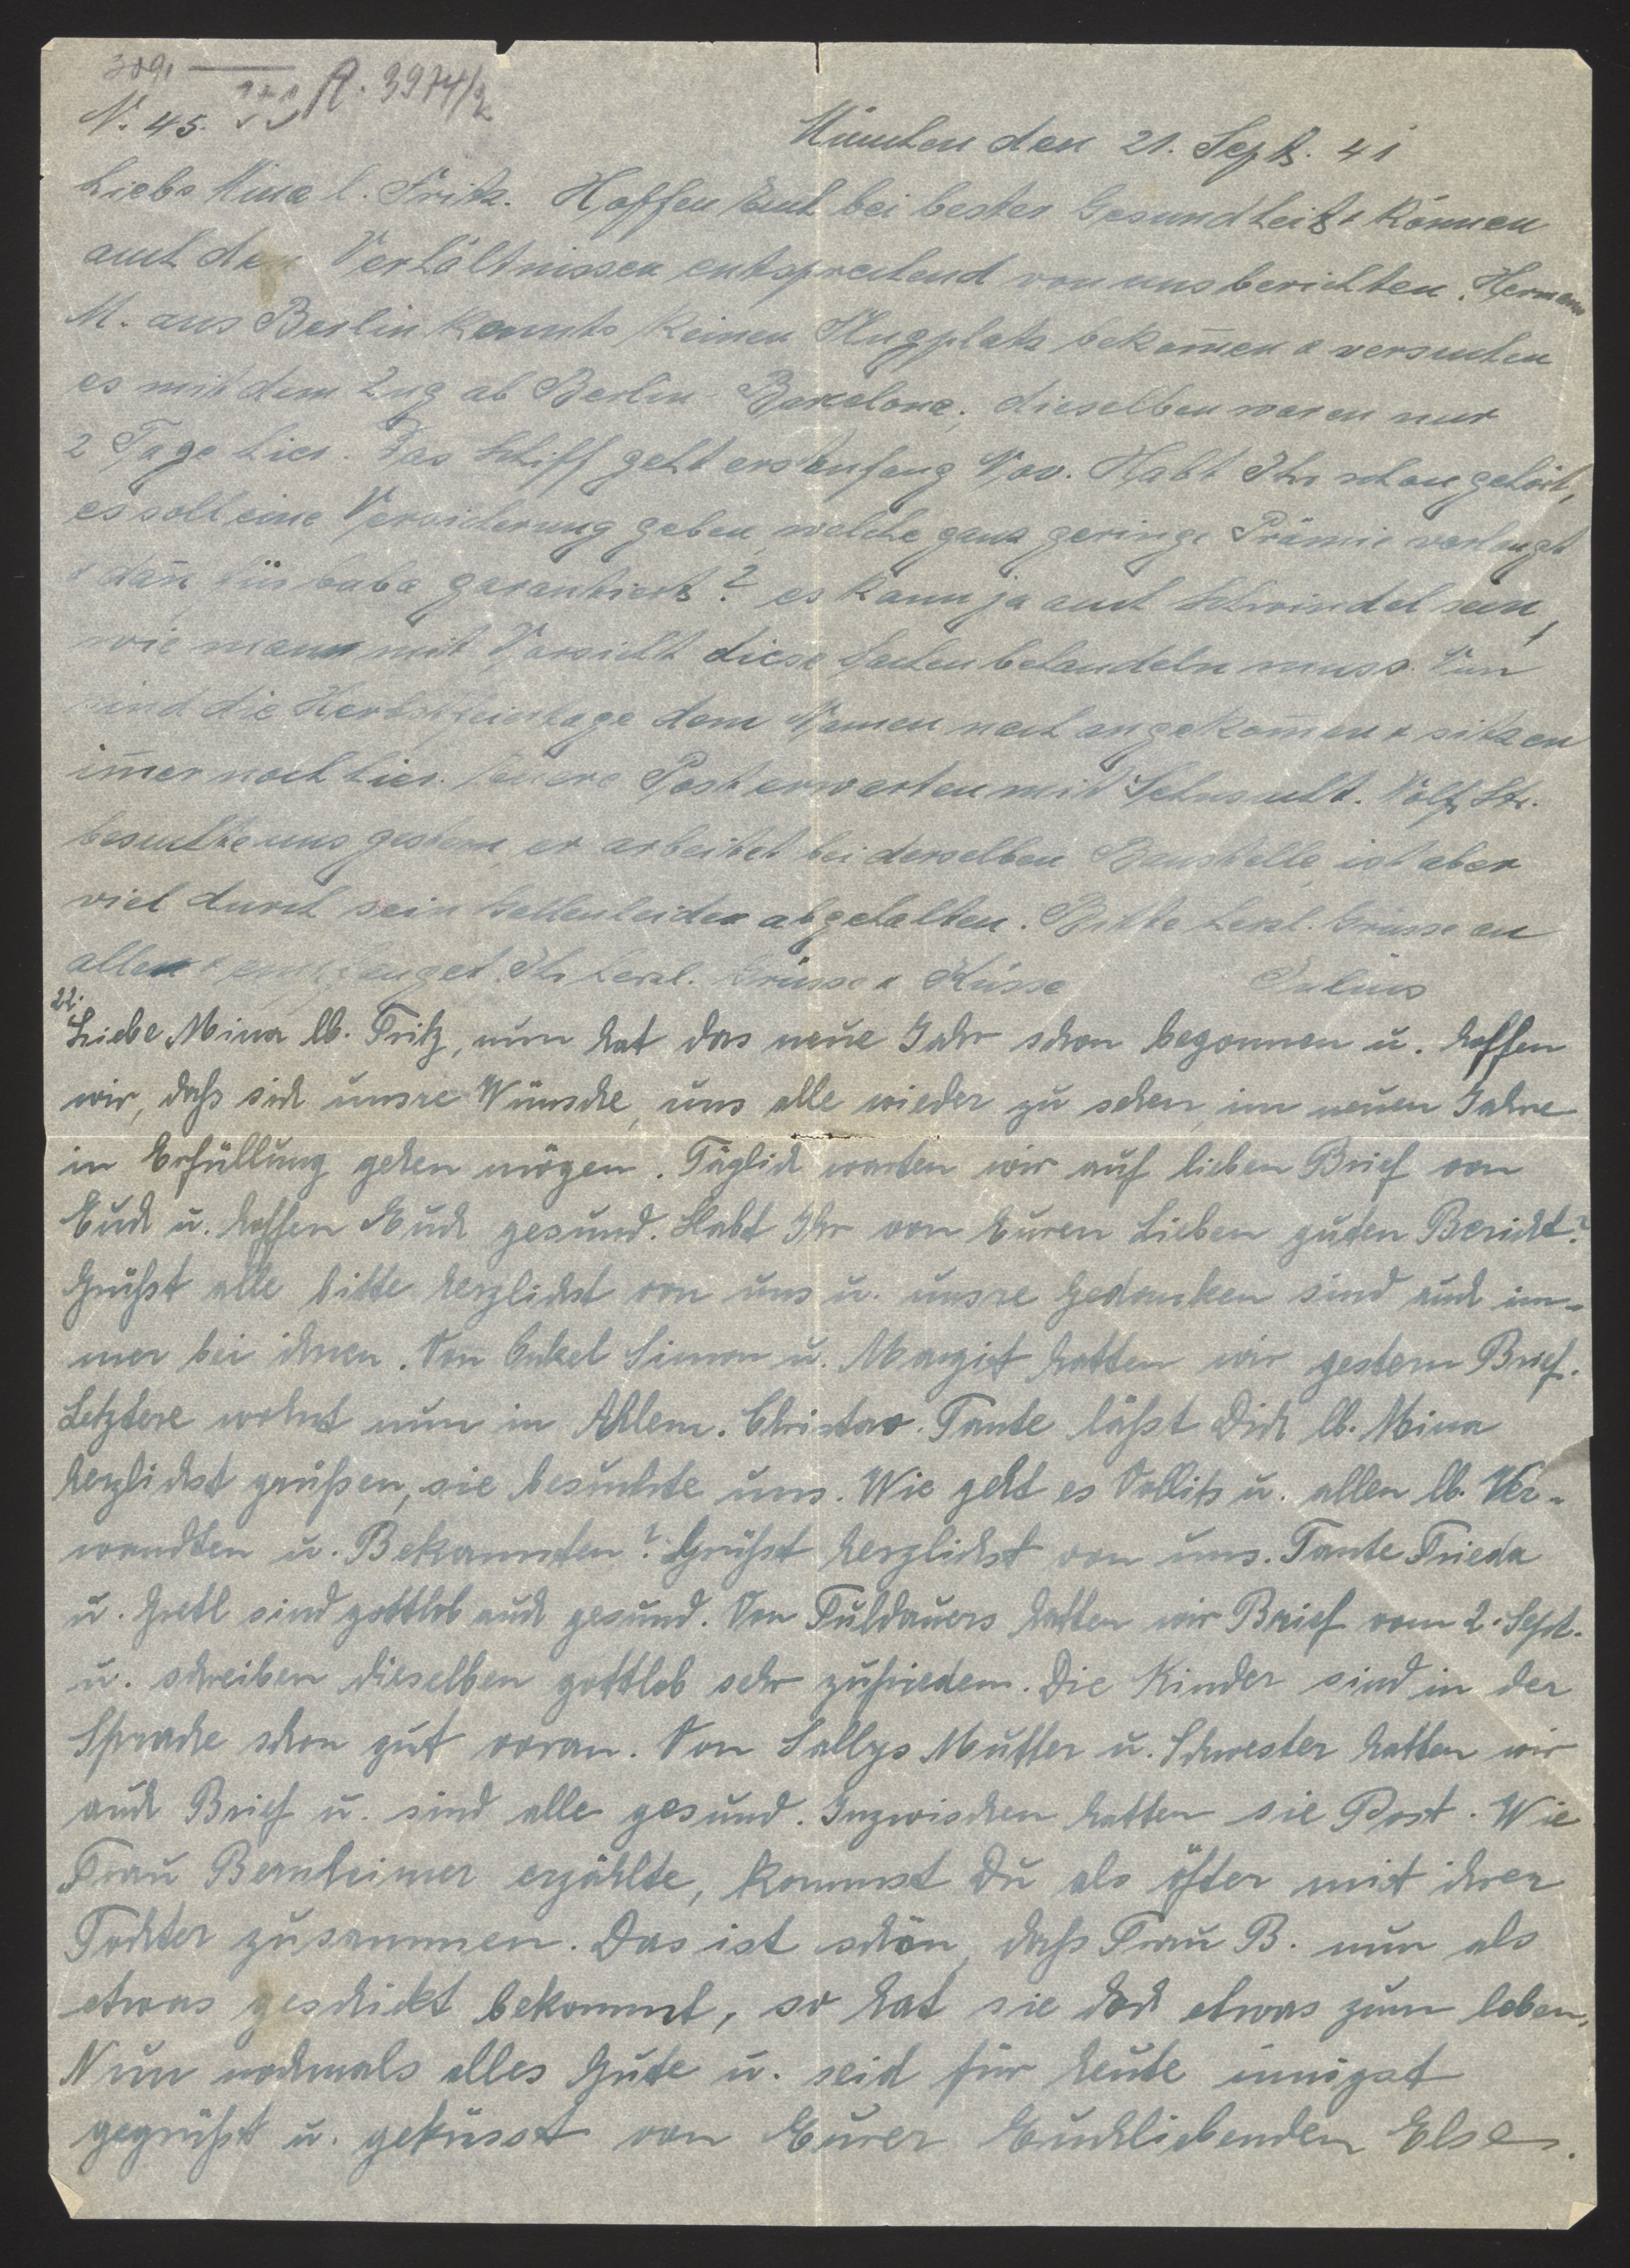 A. 3974/2
N. 45.
München den 21. Sept. 41
Liebe Mina l. Fritz. Hoffen Euch bei bester Gesundheit & können
auch den Verhältnissen entsprechend von uns berichten. Hermann
M. aus Berlin konnte keinen Flugplatz bekom̅en & versuchen
es mit dem Zug ab Berlin - Barcelona, dieselben waren nur
2 Tage hier. Das Schiff geht erst anfang Nov. Habt Ihr schon gehört,
es soll eine Versicherung geben, welche ganz geringe Prämie verlangt
& dan̅ für garantiert? es kann ja auch Schwindel sein,
wie mann mit Vorsicht diese Sachen behandeln muss. Nun
sind die Herbstfeiertage dem Namen nach angekom̅en & sitzen
im̅er noch hier. Euere Post erwarten mit Sehnsucht.
besuchte uns gestern, er arbeitet bei derselben Baustelle, ist aber
viel durch sein Gallenleiden abgehalten. Bitte herzl. Grüsse an
allen & empfanget Ihr herzl. Grüsse & Küsse Julius
22.
Liebe Mina lb. Fritz, nun hat das neue Jahr schon begonnen u. hoffen
wir, daß sich unsre Wünsche, uns alle wieder zu sehen, im neuen Jahre
in Erfüllung gehen mögen. Täglich warten wir auf lieben Brief von
Euch u. hoffen Euch gesund. Habt Ihr von Euren Lieben guten Bericht?
Grüßt alle bitte herzlichst von uns u. unsre Gedanken sind auch im-
mer bei ihnen. Von Onkel Simon u. Margit hatten wir gestern Brief.
Letztere wohnt nun in Ahlem. Tante läßt Dich lb. Mina
herzlichst grüßen, sie besuchte uns. Wie geht es u. allen lb. Ver-
wandten u. Bekannten? Grüßt herzlichst von uns. Tante Frieda
u. Gretl sind gottlob auch gesund. Von Fuldauers hatten wir Brief vom 2. Sept.
u. schreiben dieselben gottlob sehr zufrieden. Die Kinder sind in der
Sprache schon gut voran. Von Sallys Mutter u. Schwester hatten wir
auch Brief u. sind alle gesund. Inzwischen hatten sie Post. Wie
Frau Bernheimer erzählte, kommst Du als öfter mit ihrer
Tochter zusammen. Das ist schön, daß Frau B. nun als
etwas geschickt bekommt, so hat sie doch etwas zum leben.
Nun nochmals alles Gute u. seid für heute innigst
gegrüßt u. geküsst von Eurer Euchliebenden Else.